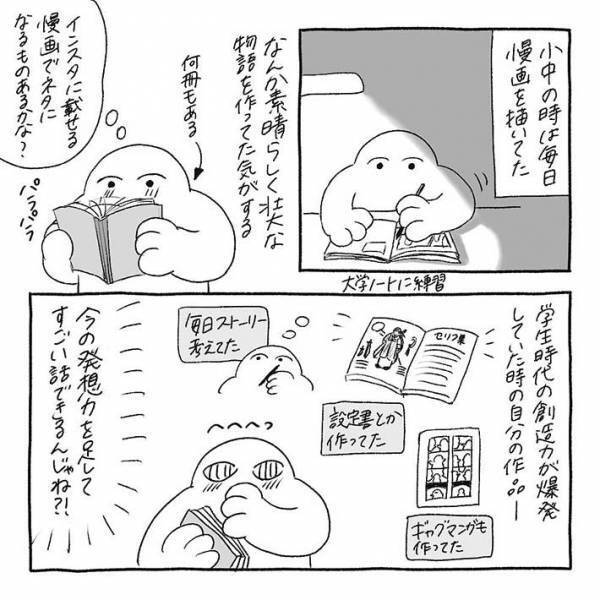 小中の時は毎日
漫画を描いてた
大学ノートに練習
なんか素晴らしく壮大な
物語を作ってた気がする
何冊もある
インスタに載せる
漫画でネタに
なるものあるかな？
パラパラ
学生時代の創造力が爆発
していた時の自分の作品ー
セリフ集
設定書とか
作ってた
ギャグマンガも
作ってた
毎日ストーリー
考えてた
へへへっ
今の発想力を足して
すごい話できるんじゃね？！